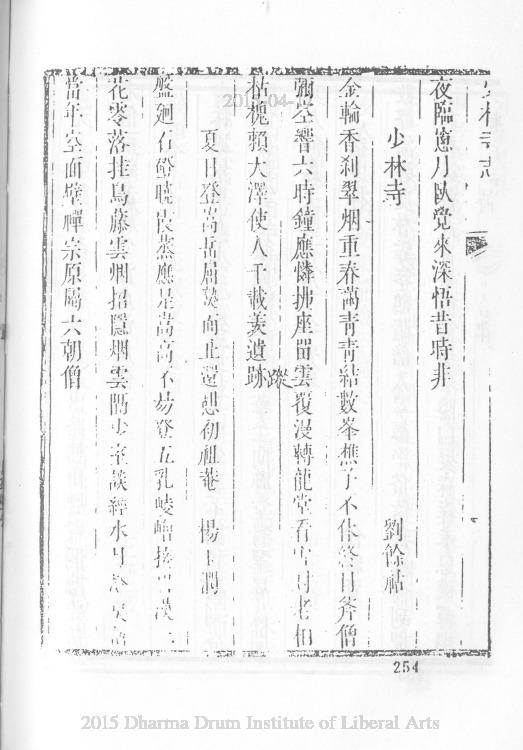 少林寺志
夜臨窻月臥覺來深悟昔時非
少林寺 劉餘祐
金輪香刹翠烟重春藹青青結數峯樵子不休終日斧僧
彌空響六時鐘應憐拂座留雲覆漫轉龍堂看 老柏
枯槐賴大澤使人千載羨遺跡蹤
夏日登嵩岳 而止還憩初祖菴 楊 潤
盤廻石磴曉霞蒸應是嵩高不易登五乳崚嶒接
花零落挂烏藤雲 招隱烟雲閉少室談經水月
當年空面壁禪宗原屬六朝僧
254
2015-04-
2015 Dharma Drum Institute of Liberal Arts